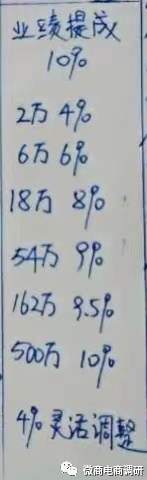 业绩提成
10%
2万 4%
6万 6%
18万 8%
54万 9%
162万 9.5%
500万 10%
4% 灵活调整
微商电商调研